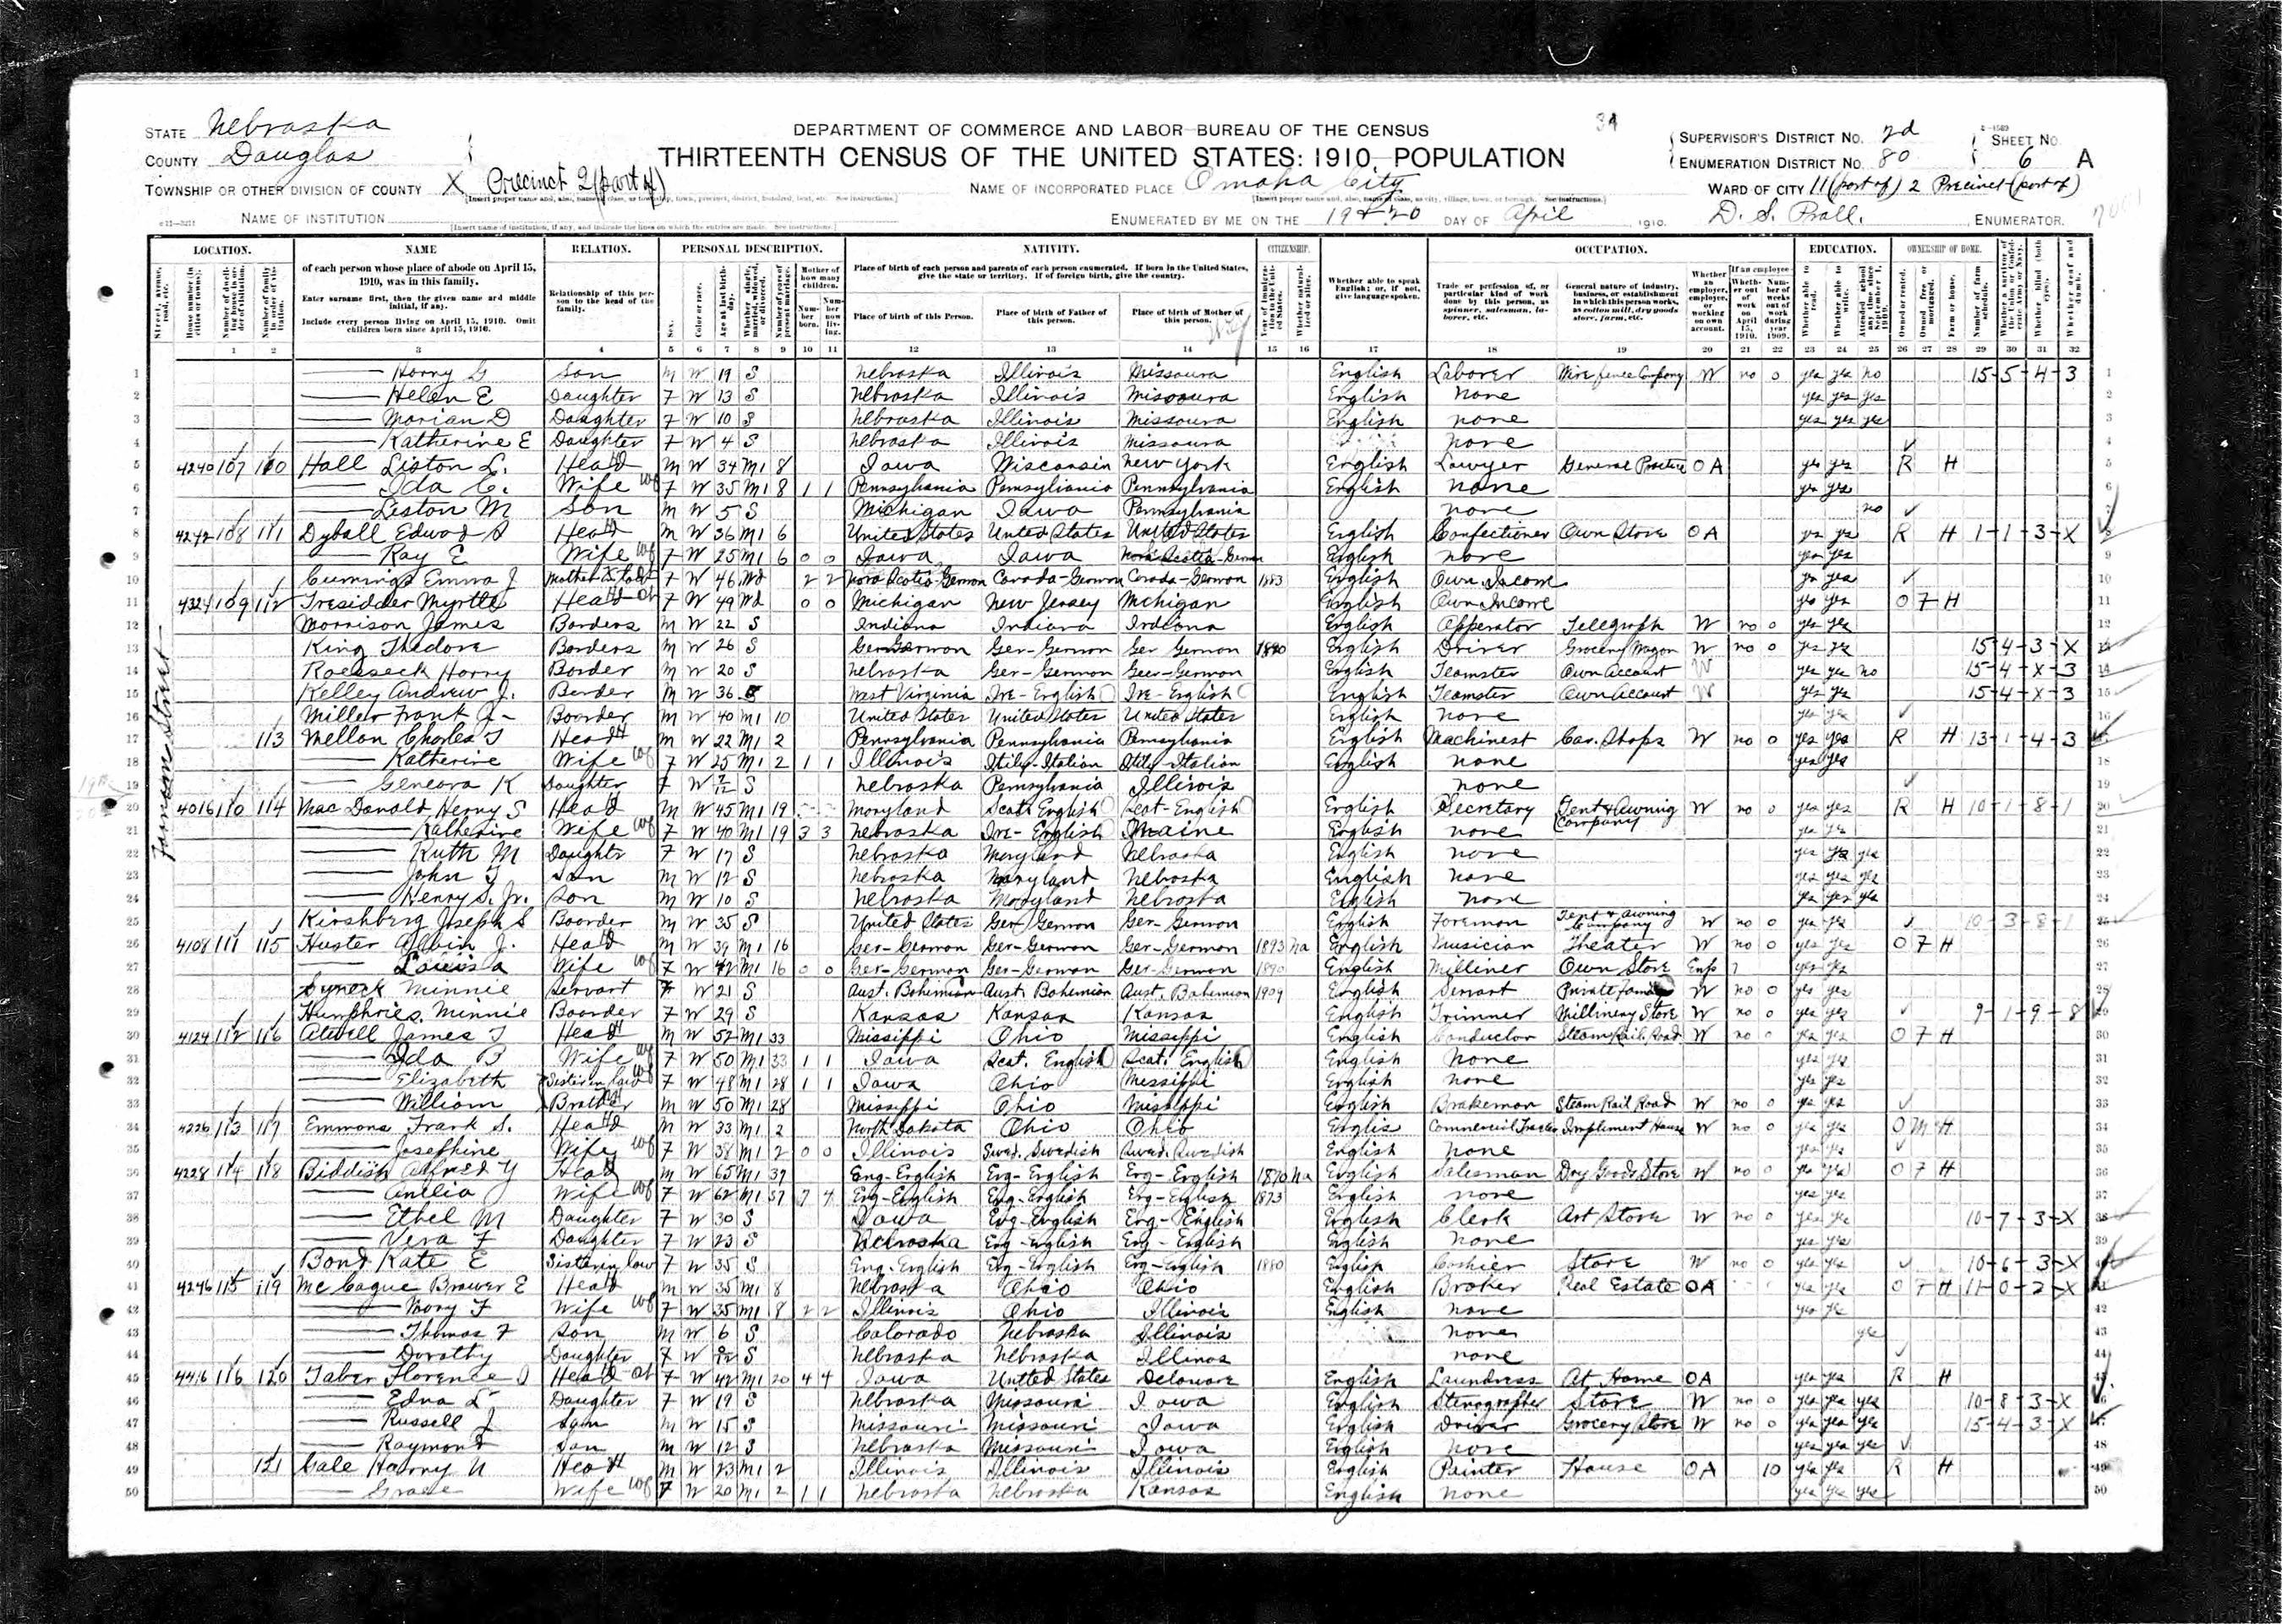 STATE Nebraska
COUNTY Douglas
TOWNSHIP OR OTHER DIVISION OF COUNTY X Precinct 2 (part of)
NAME OF INSTITUTION
DEPARTMENT OF COMMERCE AND LABOR—BUREAU OF THE CENSUS
THIRTEENTH CENSUS OF THE UNITED STATES: 1910—POPULATION
NAME OF INCORPORATED PLACE Omaha City
ENUMERATED BY ME ON THE 19 & 20 DAY OF April, 1910.
SUPERVISOR'S DISTRICT No. 2d
ENUMERATION DISTRICT No. 80
SHEET No. 6 A
WARD OF CITY 11 (part of) 2 Precinct (part of)
D. S. Prall, ENUMERATOR.
LOCATION. NAME RELATION. PERSONAL DESCRIPTION. NATIVITY. CITIZENSHIP. OCCUPATION. EDUCATION. OWNERSHIP OF HOME.
of each person whose place of abode on April 15, 1910, was in this family.
Enter surname first, then the given name and middle initial, if any.
Include every person living on April 15, 1910. Omit children born since April 15, 1910.
Relationship of this person to the head of the family.
Place of birth of each person and parents of each person enumerated. If born in the United States, give the state or territory. If of foreign birth, give the country.
Place of birth of this Person. Place of birth of Father of this person. Place of birth of Mother of this person.
Whether able to speak English; or, if not, give language spoken.
1 2 3 4 5 6 7 8 9 10 11 12 13 14 15 16 17 18 19 20 21 22 23 24 25 26 27 28 29 30 31 32
Farnam Street
1 Harry G Son M W 19 S Nebraska Illinois Missoura English Laborer Wire fence Company W no 0 yes yes no 15-5-4-3
2 Helen E Daughter F W 13 S Nebraska Illinois Missoura English none yes yes yes
3 Marian D Daughter F W 10 S Nebraska Illinois Missoura English none yes yes yes
4 Katherine E Daughter F W 4 S Nebraska Illinois Missoura none
5 4240 107 110 Hall Liston L. Head M W 34 M1 8 Iowa Wisconsin New York English Lawyer General Practice OA yes yes R H
6 Ida C. Wife F W 35 M1 8 1 1 Pennsylvania Pennsylvania Pennsylvania English none yes yes
7 Liston M Son M W 5 S Michigan Iowa Pennsylvania none no
8 4242 108 111 Dyball Edward A Head M W 36 M1 6 United States United States United States English Confectioner Own Store OA yes yes R H 1-1-3-X
9 Ray E Wife F W 25 M1 6 0 0 Iowa Iowa Nova Scotia-German English none yes yes
10 Cumings Emma J Mother in law F W 46 Wd 2 2 Nova Scotia-German Canada-German Canada-German 1883 English Own Income yes yes
11 4324 109 112 Tresidder Myrtle Head F W 49 Wd 0 0 Michigan New Jersey Michigan English Own Income yes yes O F H
12 Morrison James Borders M W 22 S Indiana Indiana Indiana English Opperator Telegraph W no 0 yes yes
13 King Thedore Borders M W 26 S Ger German Ger-German Ger German 1890 English Driver Grocery Wagon W no 0 yes yes 15-4-3-X
14 Harry Border M W 20 S Nebraska Ger-German Geer-German English Teamster Own Account W yes yes no 15-4-X-3
15 Kelley Andrew J. Border M W 36 S West Virginia Ire-English Ire-English English Teamster Own Account W yes yes 15-4-X-3
16 Miller Frank J- Boorder M W 40 M1 10 United States United States United States English none yes yes
17 113 Mellon Charles T Head M W 22 M1 2 Pennsylvania Pennsylvania Pennsylvania English Machinest Car. Shops W no 0 yes yes R H 13-1-4-3
18 Katherine Wife F W 25 M1 2 1 1 Illinois Itily-Italian Itily-Italian English none yes yes
19 K Daughter F W S Nebraska Pennsylvania Illinois none
20 4016 110 114 Mac Donald Henry S Head M W 45 M1 19 Maryland Scot English Scot-English English Secretary Tent & Awning Company W no 0 yes yes R H 10-1-8-1
21 Katherine Wife F W 40 M1 19 3 3 Nebraska Ire-English Maine English none yes yes
22 Ruth M Daughter F W 17 S Nebraska Maryland Nebraska English none yes yes yes
23 John Son M W 12 S Nebraska Maryland Nebraska English none yes yes yes
24 Henry S. Jr. Son M W 10 S Nebraska Maryland Nebraska English none yes yes yes
25 Kirshberg Joseph S Boorder M W 35 S United States Ger German Ger-German English Foreman Tent & Awning Company W no 0 yes yes 10-3-8-1
26 4108 111 115 Huster Albin J. Head M W 39 M1 16 Ger-German Ger-German Ger-German 1893 Na English Musician Theater W no 0 yes yes O F H
27 Louisa Wife F W 42 M1 16 0 0 Ger-German Ger-German Ger-German 1890 English Milliner Own Store Emp yes yes
28 Minnie Servant F W 21 S Aust. Bohemian Aust. Bohemian Aust. Bohemian 1909 English Servant Private family W no 0 yes yes
29 Humphries Minnie Boorder F W 29 S Kansas Kansas Kansas English Trimner Millinery Store W no 0 yes yes 9-1-9-8
30 4124 112 116 Atwell James T Head M W 52 M1 33 Missippi Ohio Missippi English Conductor Steam Rail Road W no 0 yes yes O F H
31 Ida B Wife F W 50 M1 33 1 1 Iowa Scot. English Scot. English English None yes yes
32 Elizabeth Sister in law F W 48 M1 28 1 1 Iowa Ohio Messippi English none yes yes
33 William Brother M W 50 M1 28 Missippi Ohio Missippi English Brakeman Steam Rail Road W no 0 yes yes
34 4226 113 117 Emmons Frank S. Head M W 33 M1 2 North Dakota Ohio Ohio Englis Commercial Traveler Implement House W no 0 yes yes O M H
35 Josephine Wife F W 38 M1 2 0 0 Illinois Swed. Swedish Swed. Swedish English none yes yes
36 4228 114 118 Biddish Alfred Y Head M W 65 M1 37 Eng-English Eng-English Eng-English 1870 Na English Salesman Dry Goods Store W no 0 yes yes O F H
37 Amelia Wife F W 62 M1 37 7 4 Eng-English Eng-English Eng-English 1873 English none yes yes
38 Ethel M Daughter F W 30 S Iowa Eng-English Eng-English English Clerk Art Store W no 0 yes yes 10-7-3-X
39 Vera F Daughter F W 23 S Nebraska Eng-English Eng-English English none yes yes
40 Bond Kate E Sister in law F W 35 S Eng-English Eng-English Eng-English 1880 English Cashier Store W no 0 yes yes 10-6-3-X
41 4246 115 119 McCague Brower E Head M W 35 M1 8 Nebraska Ohio Ohio English Broker Real Estate OA yes yes O F H 11-0-2-X
42 Mary F Wife F W 35 M1 8 2 2 Illinois Ohio Illinois English none yes yes
43 Thomas F Son M W 6 S Colorado Nebraska Illinois none yes
44 Dorothy Daughter F W S Nebraska Nebraska Illinos none
45 4416 116 120 Taber Florence Head F W 42 M1 20 4 4 Iowa United States Delaware English Laundress At Home OA yes yes R H
46 Edna L Daughter F W 19 S Nebraska Missoura Iowa English Stenographer Store W no 0 yes yes yes 10-8-3-X
47 Russell J Son M W 15 S Missouri Missouri Iowa English Driver Grocery Store W no 0 yes yes yes 15-4-3-X
48 Raymond Son M W 12 S Nebraska Missouri Iowa English none yes yes yes
49 121 Gale Harry N Head M W 23 M1 2 Illinois Illinois Illinois English Painter House OA 10 yes yes R H
50 Grace Wife F W 20 M1 2 1 1 Nebraska Nebraska Kansas English none yes yes yes